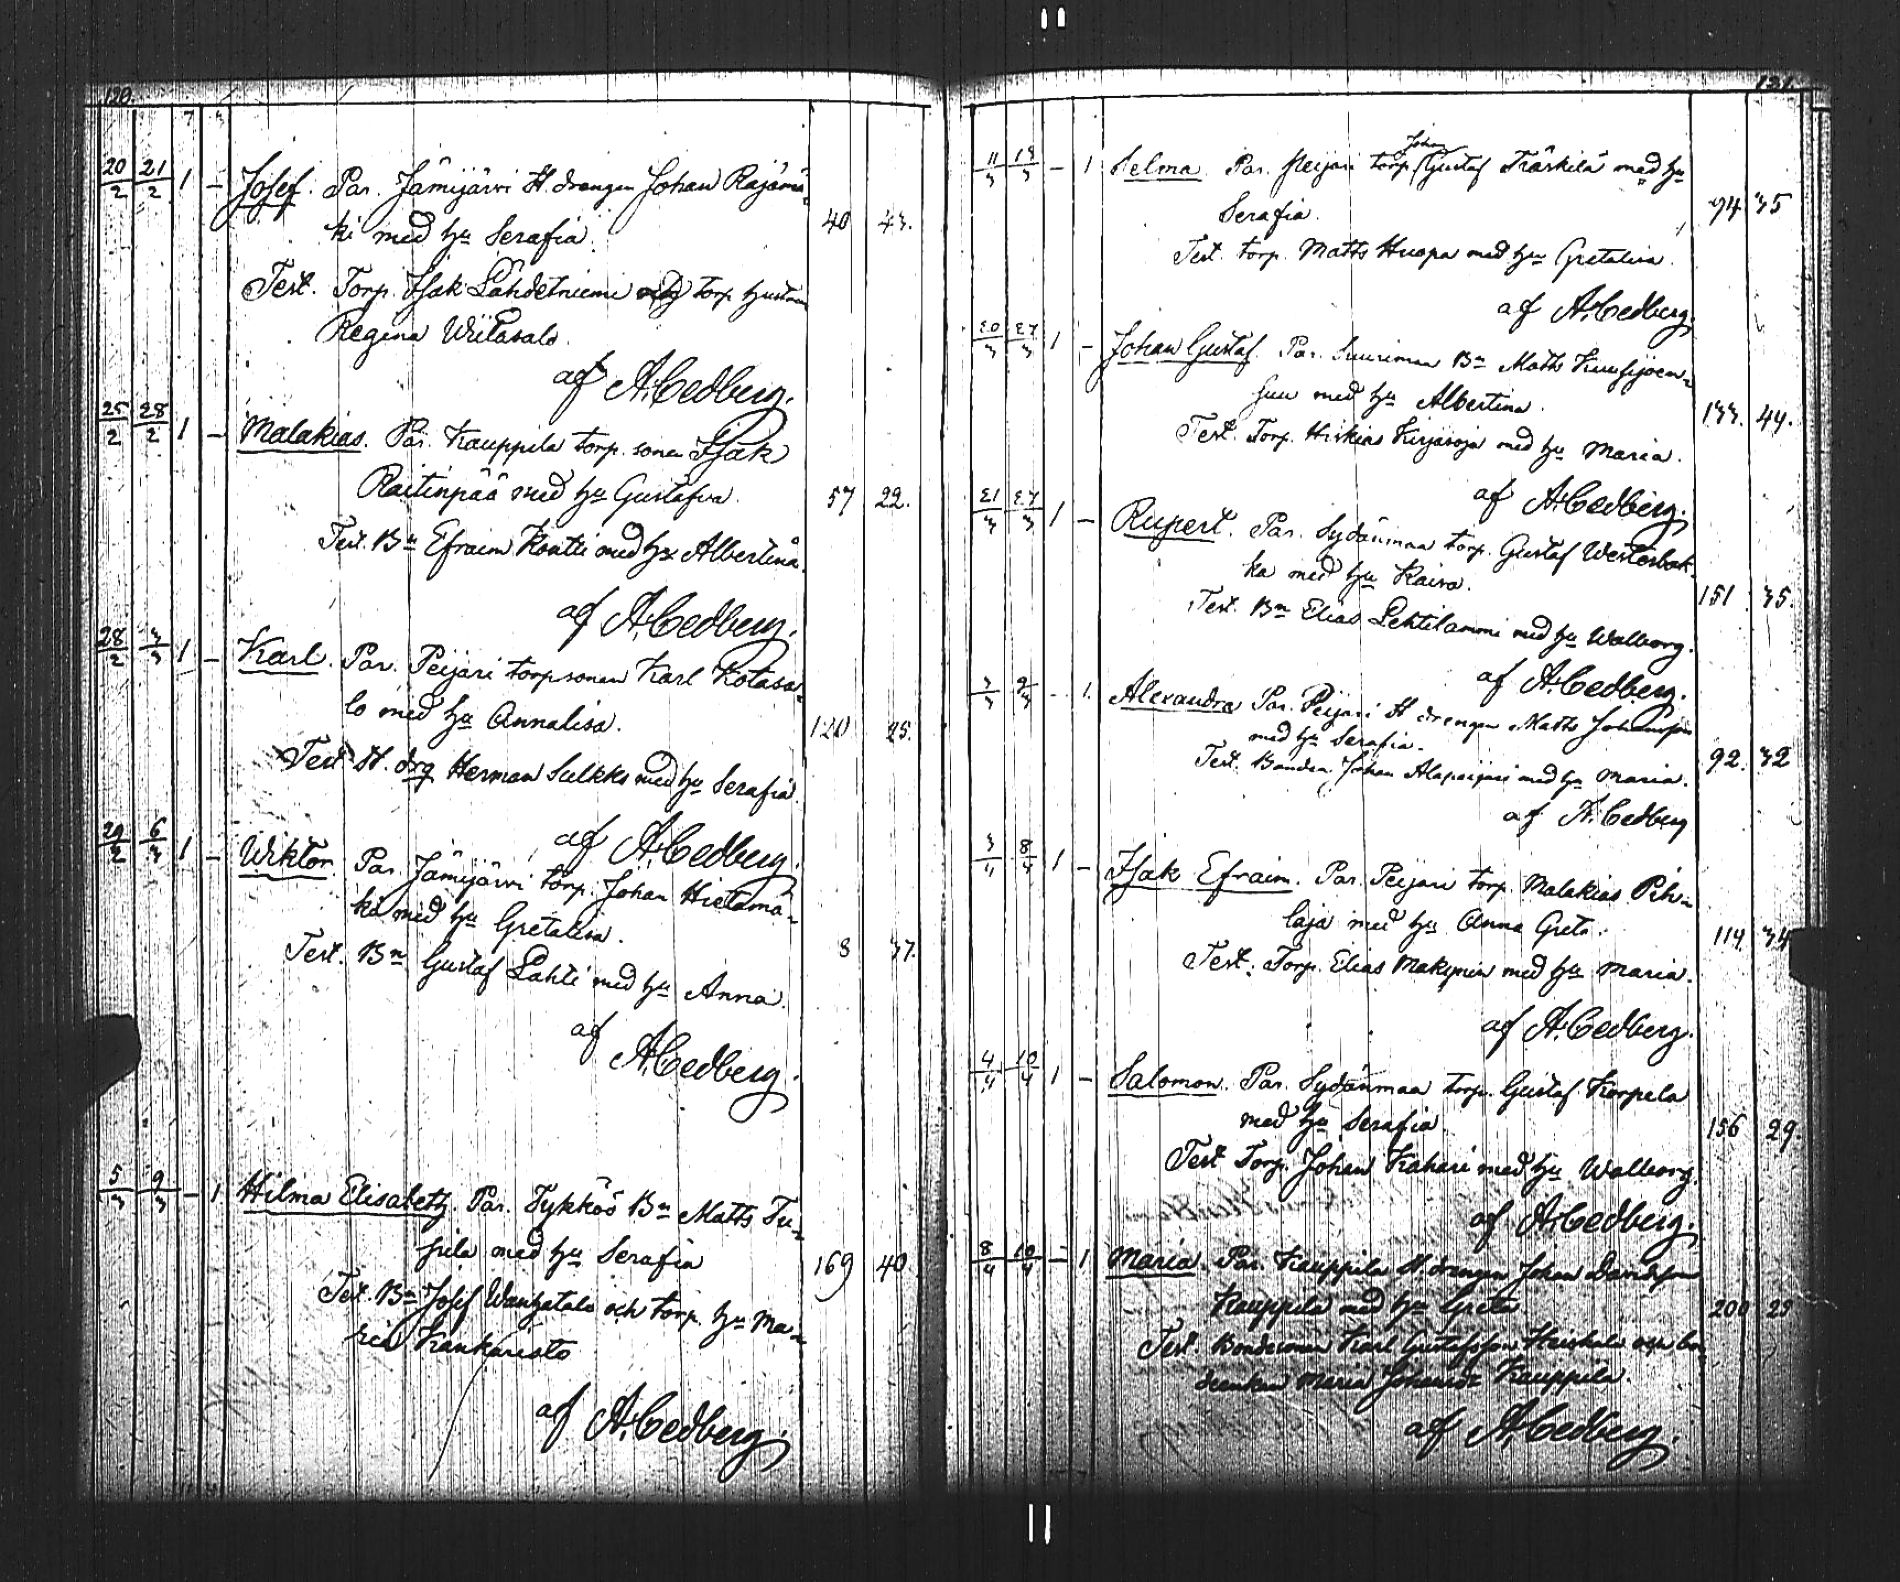 120.
20/2 21/2 1 – Josef. Par. Jämijärvi St. drengen Johan Rajämä-
ki med hu Serafia. 40 43.
Test. Torp. Isak Lähdetniemi och torp hustrun
Regina Wiitasalo.
af A. Cedberg.
25/2 28/2 1 – Malakias. Par. Kauppila torp. sonen Isak
Raitinpää med hu Gustafva. 57 22.
Test. Bn Efraim Kontti med hu Albertina.
af A. Cedberg.
28/2 3/3 1 – Karl. Par. Peijari torpsonen Karl Kotasa-
lo med hu Annalisa. 120 25.
Test St. drg Herman Sulkko med hu Serafia.
af A. Cedberg.
29/2 6/3 1 – Wiktor. Par. Jämijärvi torp. Johan Hietamä-
ki med hu Gretalisa. 8 37.
Test. Bn Gustaf Lahti med hu Anna.
af A. Cedberg.
5/3 9/3 – 1 Hilma Elisabeth. Par. Tykköö Bn Matts Tu-
pila med hu Serafia 169 40
Test. Bn Josef Wanhatalo och torp. hu Ma-
ria Kankaristo
af A. Cedberg.
121.
11/3 13/3 – 1 Selma. Par. Peijari torp. Johan Gustaf Träskilä med hu
Serafia. 94 35
Test. torp. Matts Huopa med hu Gretalisa.
af A. Cedberg.
20/3 27/3 1 – Johan Gustaf. Par. Suurimaa Bn Matts Kuusijoen-
suu med hu Albertina. 133. 44.
Test. Torp. Hiskias Kirjasoja med hu Maria.
af A. Cedberg.
21/3 27/3 1 – Rupert. Par. Sydänmaa torp. Gustaf Westerbak-
ka med hu Kaisa. 151 35.
Test. Bn Elias Lehtilammi med hu Walborg.
af A. Cedberg.
3/3 9/3 – 1. Alexandra Par. Peijari St drengen Matts Johansson
med hu Serafia. 92. 32
Test. Bonden Johan Alapeijari med hu Maria.
af A. Cedberg
3/4 8/4 1 – Isak Efraim. Par. Peijari torp. Malakias Pih-
laja med hu Anna Greta. 114. 34
Test. Torp. Elias Makynen med hu Maria.
af A. Cedberg.
4/4 10/4 1 – Salomon. Par. Sydänmaa torp. Gustaf Korpela
med hu Serafia. 156 29.
Test Torp. Johan Kahari med hu Walborg.
af A. Cedberg.
8/4 10/4 – 1 Maria. Par. Kauppila St. drengen Johan Davidsson
Kauppila med hu Greta 200 29
Test. Bondsonen Karl Gustafsson Heiskala och bo-
Maria Kauppila.
af A. Cedberg.